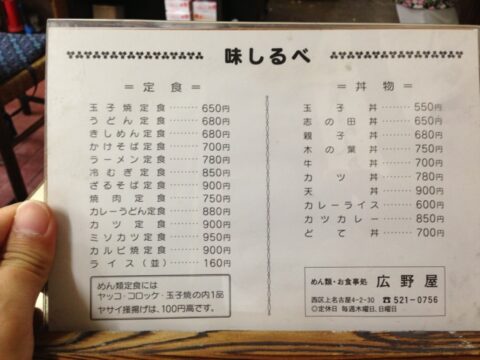 味しるべ
＝定食＝
玉子焼定食………650円
うどん定食………680円
きしめん定食………680円
かけそば定食………700円
ラーメン定食………780円
冷むぎ定食………850円
ざるそば定食………900円
焼肉定食………750円
カレーうどん定食………880円
カツ定食………900円
ミソカツ定食………950円
カルビ焼定食………900円
ライス(並)………160円
めん類定食には
ヤッコ・コロッケ・玉子焼の内1品
ヤサイ掻揚げは、100円高です。
＝丼物＝
玉子丼………550円
志の田丼………650円
親子丼………680円
木の葉丼………750円
牛丼………700円
カツ丼………780円
天丼………900円
カレーライス………600円
カツカレー………850円
どて丼………700円
めん類・お食事処 広野屋
西区上名古屋4-2-30 ☎521-0756
◎定休日 毎週木曜日、日曜日